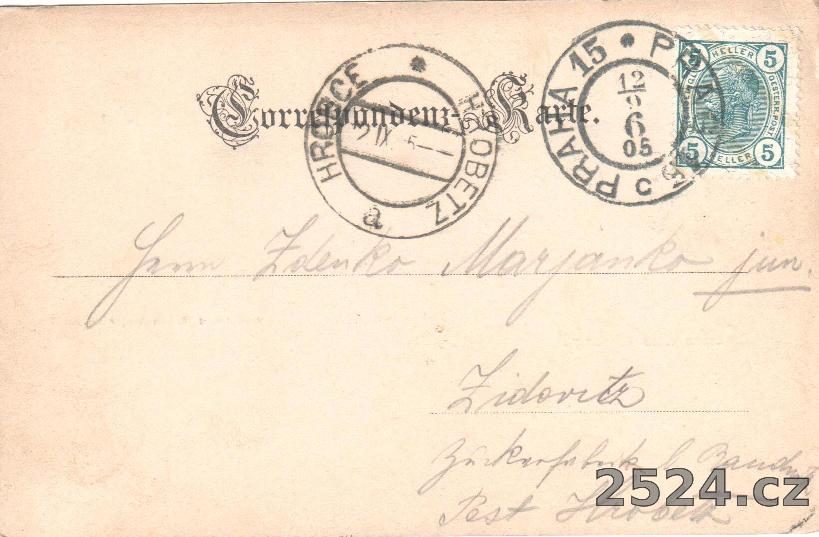 Correspondenz-Karte.
HROBCE * HROBETZ
a
PRAHA 15 * PRAG 15
12/9
6
05
c
5 HELLER 5
OESTERR. POST.
5 HELLER 5
Herrn Zdenko Marjanko jun.
Zidovitz
Zuckerfabrik b
Post Hrobetz
2524.cz